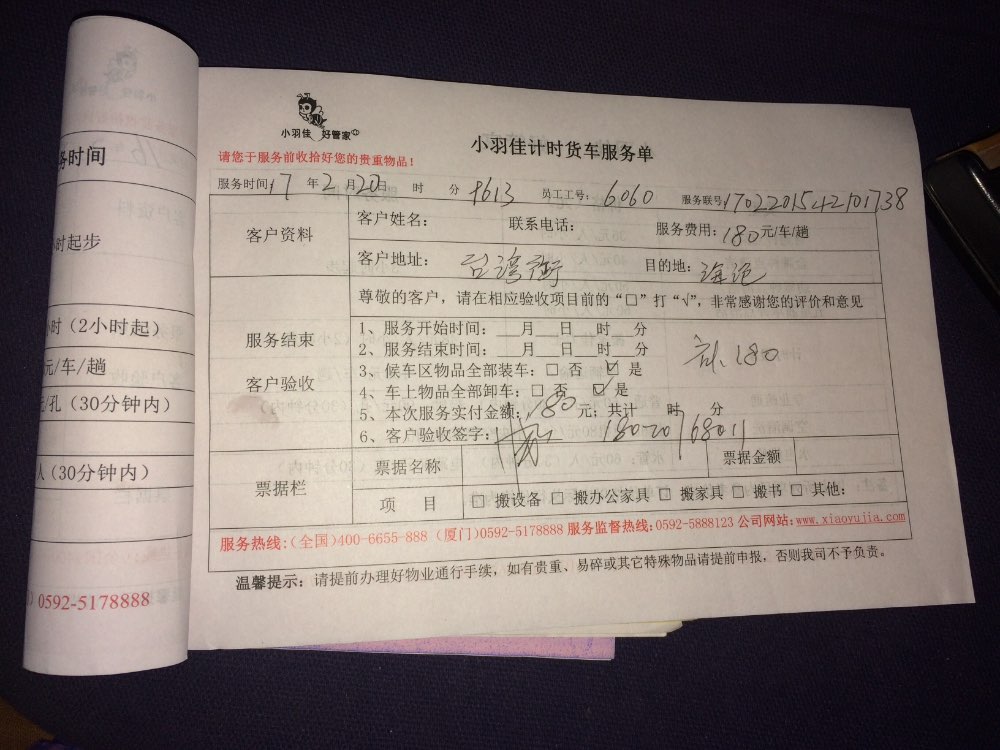 小羽佳 好管家
小羽佳计时货车服务单
请您于服务前收拾好您的贵重物品！
服务时间 17 年 2 月 20 日 时 分 员工工号： 6060 服务联号
客户资料
客户姓名： 联系电话： 服务费用：180元/车/趟
客户地址： 台湾街 目的地： 海沧
服务结束
客户验收
尊敬的客户，请在相应验收项目前的“□”打“√”，非常感谢您的评价和意见
1、服务开始时间： 月 日 时 分
2、服务结束时间： 月 日 时 分
3、候车区物品全部装车：□ 否 ☑ 是
4、车上物品全部卸车：□ 否 ☑ 是
5、本次服务实付金额：180元；共计 时 分
6、客户验收签字： 18020768011
180
票据栏
票据名称 票据金额
项 目 □ 搬设备 □ 搬办公家具 □ 搬家具 □ 搬书 □ 其他：
服务热线：（全国）400-6655-888 （厦门）0592-5178888 服务监督热线：0592-5888123 公司网站：www.xiaoyujia.com
温馨提示：请提前办理好物业通行手续，如有贵重、易碎或其它特殊物品请提前申报，否则我司不予负责。
务时间
小时起步
时（2小时起）
元/车/趟
元/孔（30分钟内）
人（30分钟内）
）0592-5178888